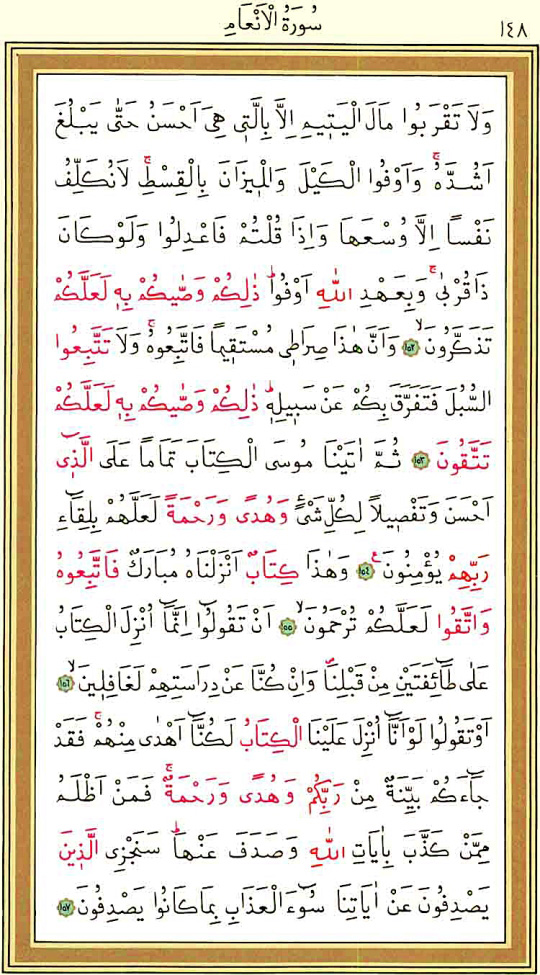 سُورَةُ الْاَنْعَامِ ١٤٨
وَلَا تَقْرَبُوا مَالَ الْيَتٖيمِ اِلَّا بِالَّتٖى هِىَ اَحْسَنُ حَتّٰى يَبْلُغَ
اَشُدَّهُۚ وَاَوْفُوا الْكَيْلَ وَالْمٖيزَانَ بِالْقِسْطِۚ لَا نُكَلِّفُ
نَفْسًا اِلَّا وُسْعَهَا وَاِذَا قُلْتُمْ فَاعْدِلُوا وَلَوْ كَانَ
ذَا قُرْبٰىۚ وَبِعَهْدِ اللّٰهِ اَوْفُواؕ ذٰلِكُمْ وَصّٰيكُمْ بِهٖ لَعَلَّكُمْ
تَذَكَّرُونَۙ ﴿١٥٢﴾ وَاَنَّ هٰذَا صِرَاطٖى مُسْتَقٖيمًا فَاتَّبِعُوهُۚ وَلَا تَتَّبِعُوا
السُّبُلَ فَتَفَرَّقَ بِكُمْ عَنْ سَبٖيلِهٖؕ ذٰلِكُمْ وَصّٰيكُمْ بِهٖ لَعَلَّكُمْ
تَتَّقُونَ ﴿١٥٣﴾ ثُمَّ اٰتَيْنَا مُوسَى الْكِتَابَ تَمَامًا عَلَى الَّذٖٓى
اَحْسَنَ وَتَفْصٖيلًا لِكُلِّ شَىْءٍ وَهُدًى وَرَحْمَةً لَعَلَّهُمْ بِلِقَٓاءِ
رَبِّهِمْ يُؤْمِنُونَࣖ ﴿١٥٤﴾ وَهٰذَا كِتَابٌ اَنْزَلْنَاهُ مُبَارَكٌ فَاتَّبِعُوهُ
وَاتَّقُوا لَعَلَّكُمْ تُرْحَمُونَۙ ﴿١٥٥﴾ اَنْ تَقُولُٓوا اِنَّمَٓا اُنْزِلَ الْكِتَابُ
عَلٰى طَٓائِفَتَيْنِ مِنْ قَبْلِنَا وَاِنْ كُنَّا عَنْ دِرَاسَتِهِمْ لَغَافِلٖينَۙ ﴿١٥٦﴾
اَوْ تَقُولُوا لَوْ اَنَّٓا اُنْزِلَ عَلَيْنَا الْكِتَابُ لَكُنَّٓا اَهْدٰى مِنْهُمْۚ فَقَدْ
جَٓاءَكُمْ بَيِّنَةٌ مِنْ رَبِّكُمْ وَهُدًى وَرَحْمَةٌۚ فَمَنْ اَظْلَمُ
مِمَّنْ كَذَّبَ بِاٰيَاتِ اللّٰهِ وَصَدَفَ عَنْهَاؕ سَنَجْزِى الَّذٖينَ
يَصْدِفُونَ عَنْ اٰيَاتِنَا سُٓوءَ الْعَذَابِ بِمَا كَانُوا يَصْدِفُونَ ﴿١٥٧﴾